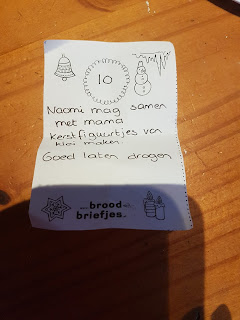 10
Naomi mag samen
met mama
kerstfiguurtjes van
klei maken.
Goed laten drogen
brood
briefjes